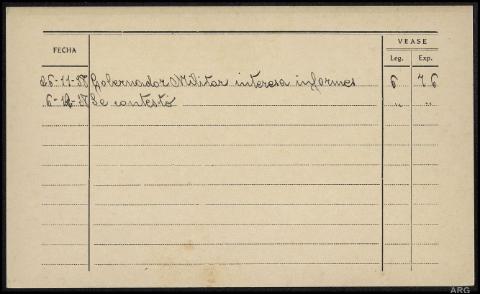 VEASE
FECHA
Leg. Exp.
26-11-38 Gobernador Militar interesa informes 6 76
6-12-38 Se contestó " "
ARG